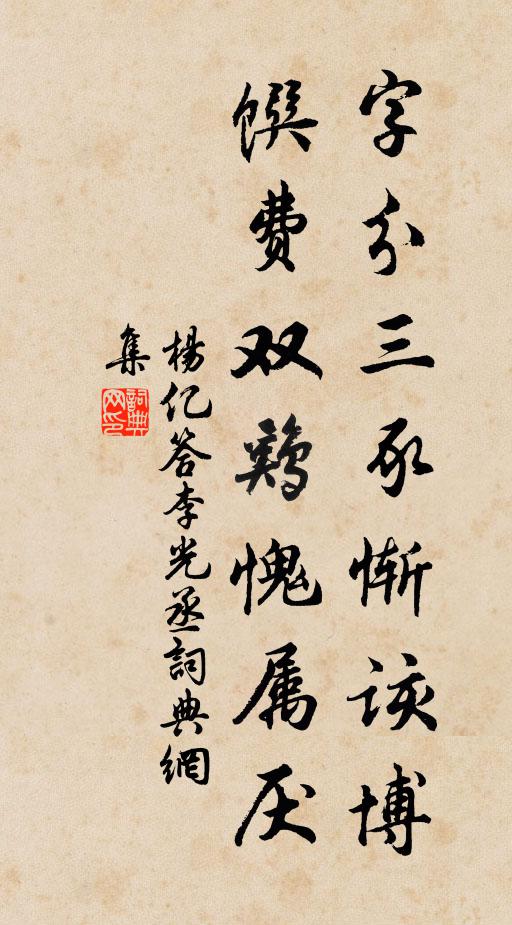 字分三豕惭该博
馔费双鸡愧属厌
杨亿答李光丞詞典網
集
詞典
网印